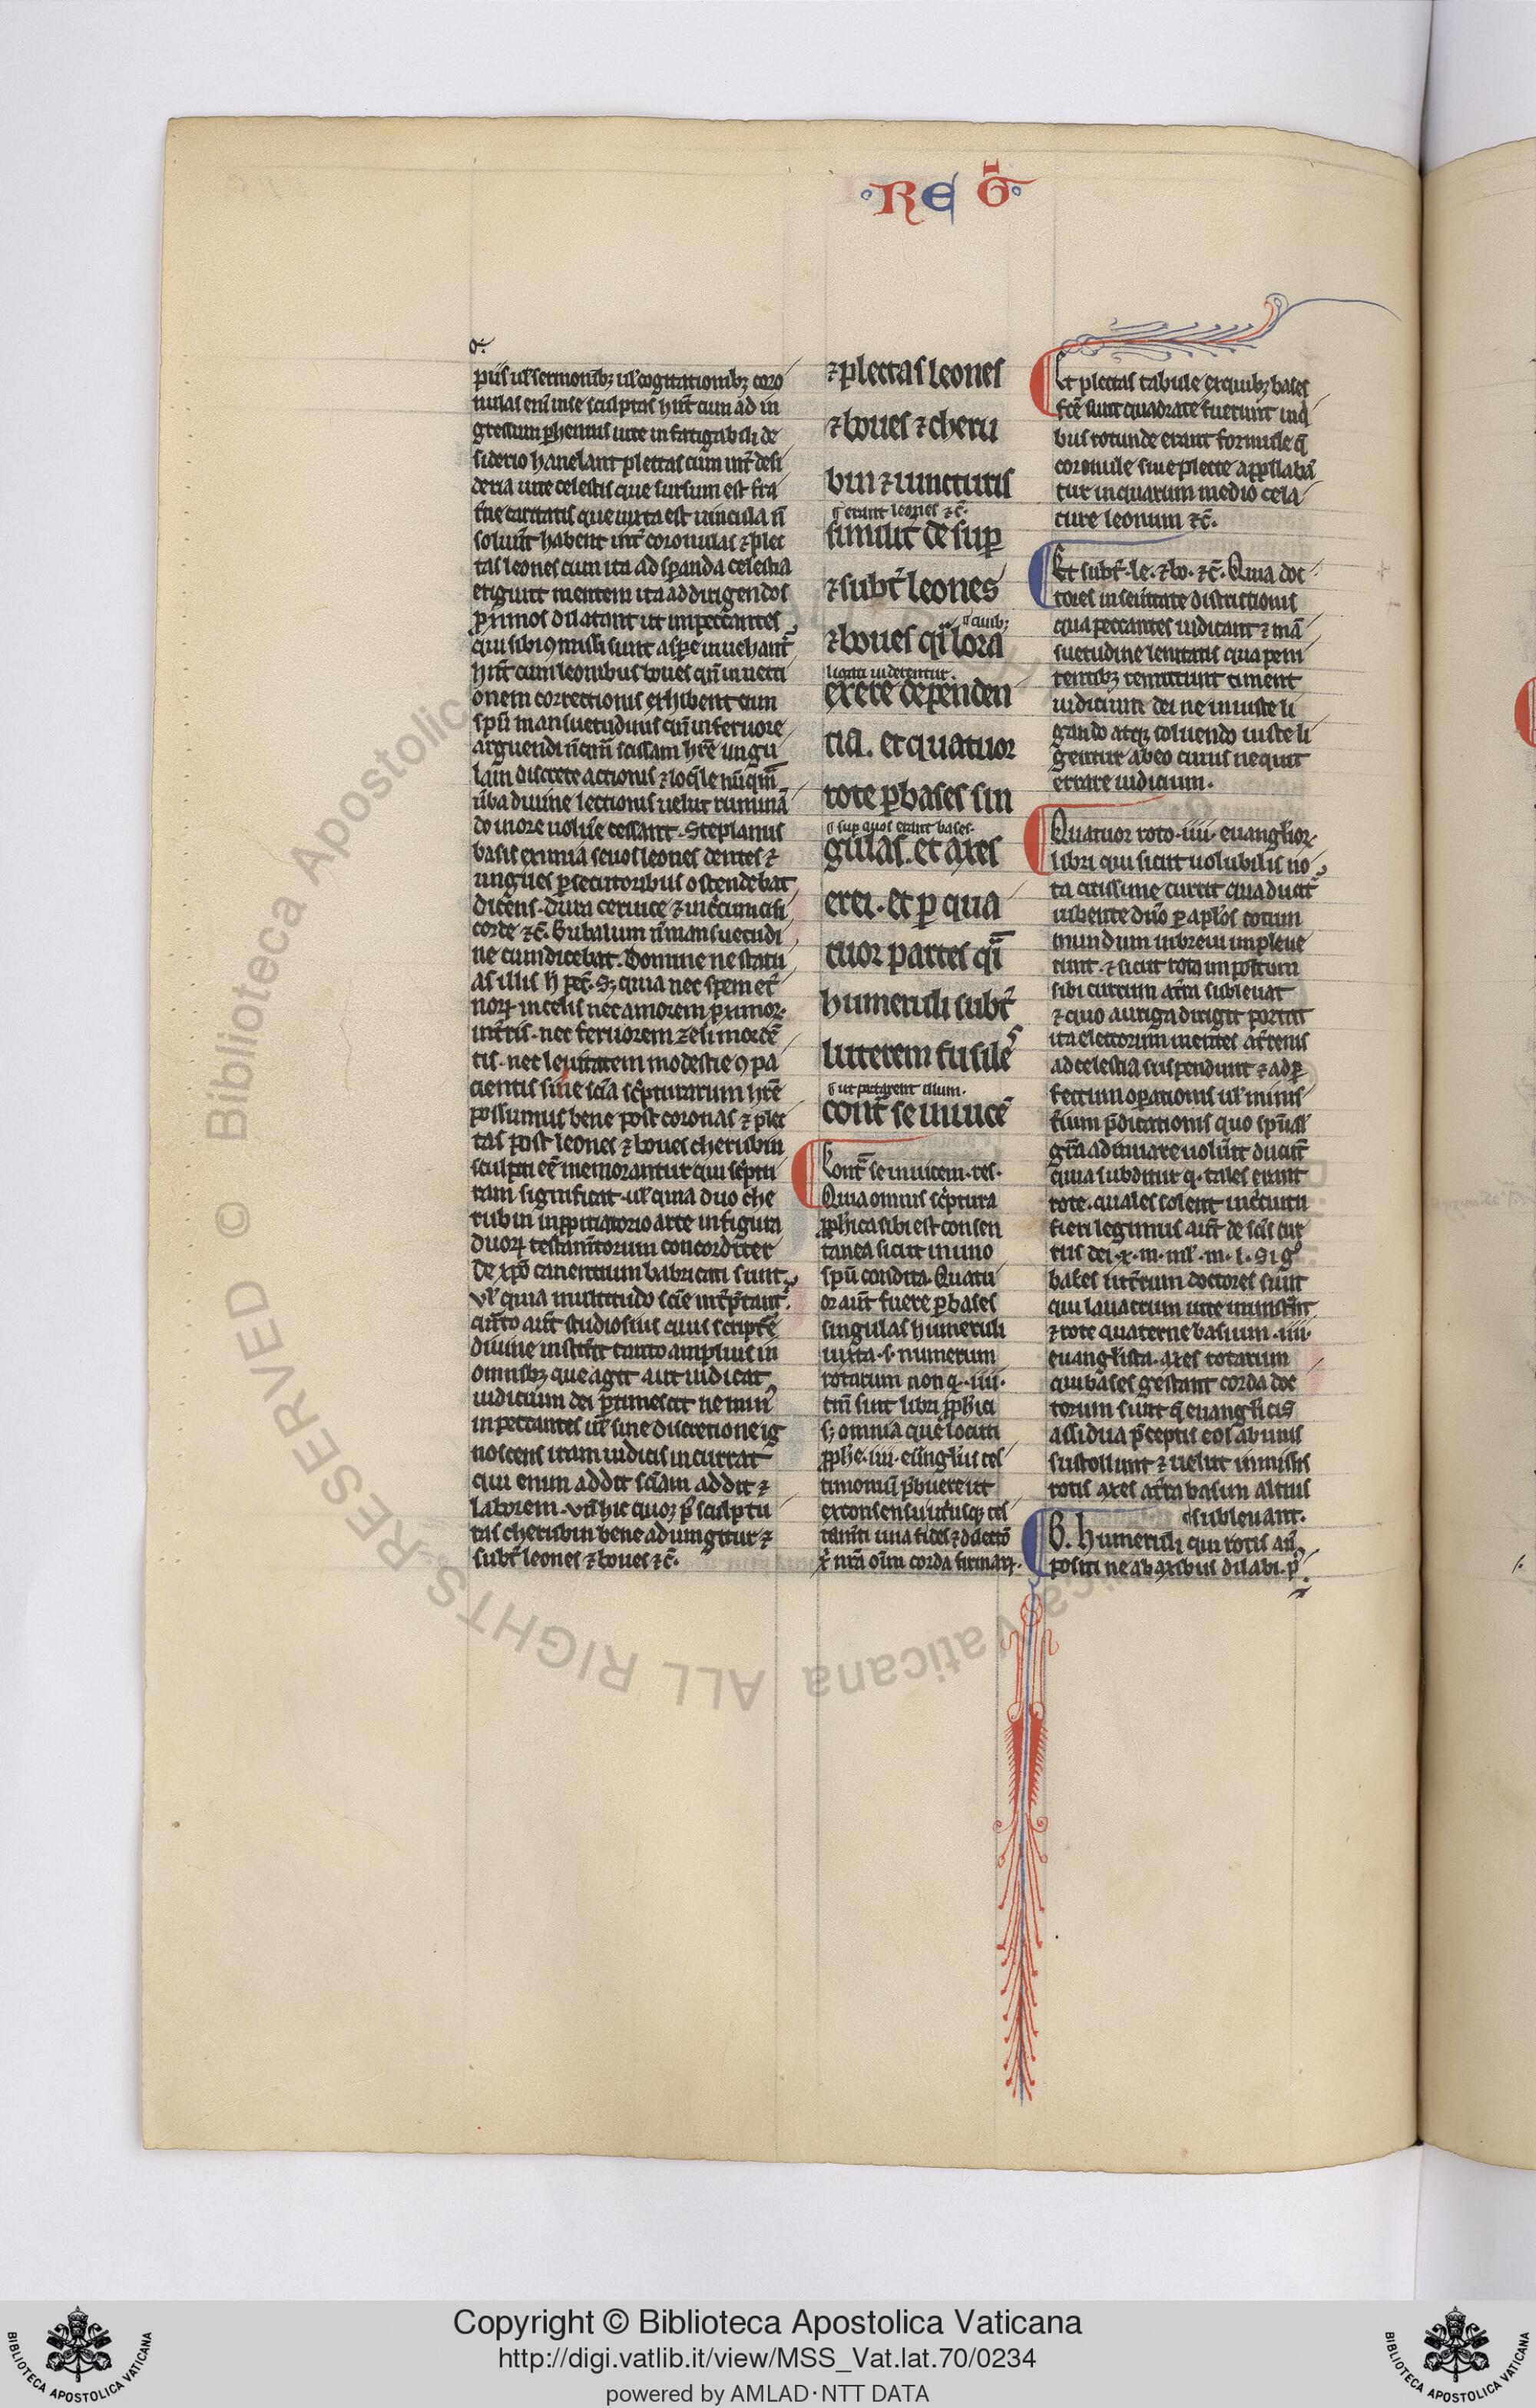 · RE G̅ ·
σ.
piis ul̕ sermonib; ul̕ cogitationib; coro
nulas eni᷑ in se sculptas hn̅t cum ad in
gressum p̲hennis uite infatigabili de
siderio hanelant plectas cum int̕ desi
deria uite celestis que sursum est fra
t̕ne caritatis que iuxta est uincula n̅
soluu̅t habent int̕ coronulas ⁊ plec
tas leones cum ita ad sp̲anda celestia
erigunt mentem ita ad dirigendos
p̲ximos dilatant ut in peccantes
qui sibi ꝯmissi sunt aspe̲ inuehant̕
hn̅t cum leonibus boues qn̅ inuecti
onem correctionis exhibent cum
sp̅u mansuetudinis qn̅ in feruore
arguendi n̅ cum̅ scissam hr̅e ungu
lam discrete actionis ⁊ locl̕e nu̅qm̅
u̕ba diuine lectionis uelut rumina̅
do in ore uolu̕e cessant. Stephanus
basis eximia seuos leones dentes ⁊
ungues p̲secutoribus ostendebat
dicens. dura ceruice ⁊ inc̕cumcisi
corde ⁊c̅. Bubalum u̕ mansuetudi
ne cum dicebat. Domine ne statu
as illis h̕ pec̅. S; quia nec spem et̕
noꝝ in celis nec amorem p̲ximoꝝ
in t̕ris. nec feruorem zeli morde̅
tis. nec leuitatem modestie ꝯpa
cientis sine sc̅ia sc̕pturarum hr̅e
possumus bene post coronas ⁊ plec
tas post leones ⁊ boues cherubin
sculpti ee̅ memorantur qui sc̕ptu
ram significat. ul̕ quia duo che
rubin in p̲pitiatorio arce in figura
duoꝝ testam̅torum concorditer
de xp̅o canentium fabricati sunt.
Vl̕ quia multitudo scie̅ int̕p̲tant̕.
qn̅to aut̅ studiosius quis scriptu̅e
diuine insistit tanto amplius in
omnib; que agit aut iudicat
iudicium dei p̲timescit ne inui̕
in peccantes ul̕ sine discretione ig
noscens iram iudicis incurrat
qui enim addit sci̅am addit ⁊
laborem. Vn̅ hic quoq; p̕ sculptu
ras cherubin bene adiungitur ⁊
subt̕ leones ⁊ boues ⁊c̅.
⁊ plectas leones
⁊ boues ⁊ cheru
bin ⁊ iuncturis
s̕ erant leones ⁊c̅.
similit̕ de sup̲
⁊ subt̕ leones
s̕ quib;
⁊ boues q̅i lora
ligati uiderentur.
ex ere dependen
tia. et quatuor
rote p̲ bases sin
s̕ sup quos erant bases.
gulas. et axes
erei. et p̲ qua
tuor partes q̅i
humeruli subt̕
luterem fusiles
s̕ ut portarent illum.
cont̕ se inuice̅
Cont̕ se inuicem. res.
Quia omnis sc̕ptura
p̲phetica sibi est consen
tanea sicut in uno
sp̅u condita. Quatu
or aut̅ fuere p̲ bases
singulas humeruli
iuxta. s. numerum
rotarum non q. iiii.
tm̅ sint libri p̲phetici
s; omnia que locuti
p̲phe. iiii. eu̅ng̕lii tes
timoniu̅ p̕buerent
ex consensu ut̕usq; tes
tam̅ti una fides ⁊ dilectio̅
x̕ nr̅a oi̅m corda firmaꝝ.
Et plectas tabule ex quib; bases
fc̅e sunt quadrate fuerunt in q̕
bus rotunde erant formule q̅
coronule siue plecte appellaba̅
tur in quarum medio cela
ture leonum ⁊c̅.
Et subt̕. le. ⁊ bo. ⁊c̅. Quia doc
tores in seu̕itate districtionis
qua peccantes iudicant ⁊ ma̅
suetudine lenitatis qua peni
tentib; remittunt timent
iudicium dei ne iniuste li
gando atq; soluendo iuste li
gentur ab eo cuius nequit
errare iudicium.
Quatuor rote. iiii. euangl̕ioꝝ
libri qui sicut uolubilis ro
ta citissime currit qua ducit̕
iubente dn̅o p̲ apl̕os totum
mundum in breui impleue
runt. ⁊ sicut rota impositum
sibi currum a t̕ra subleuat
⁊ quo auriga dirigit portat
ita electorum mentes a t̕renis
ad celestia suspendunt ⁊ ad p̲
fectum op̲ationis ul̕ minis
t̕ium p̕dicationis quo sp̅uал̕
gr̅a adiuuare uolu̕it ducit̕
quia subditur q. tales erant
rote. quales solent in c̕curru
fieri legimus aut̅ de sc̅is cur
rus dei. x. m. ml̕. m. l. Sig̕
bases lut̕rum doctores sunt
qui lauacrum uite ministra̅t
⁊ rote quaterne basium. iiii.
euangl̕ista. axes rotarum
qui bases gestant corda doc
torum sunt q̅ euangl̕icis
assidua p̕ceptis eos ab imis
sustollunt ⁊ uelut inmissis
rotis axes a t̕ra basim altius
subleuant.
G. humeruli qui rotis an̅
positi ne ab axibus dilabi. p̕
Copyright © Biblioteca Apostolica Vaticana
http://digi.vatlib.it/view/MSS_Vat.lat.70/0234
powered by AMLAD·NTT DATA
BIBLIOTECA APOSTOLICA VATICANA
BIBLIOTECA APOSTOLICA VATICANA